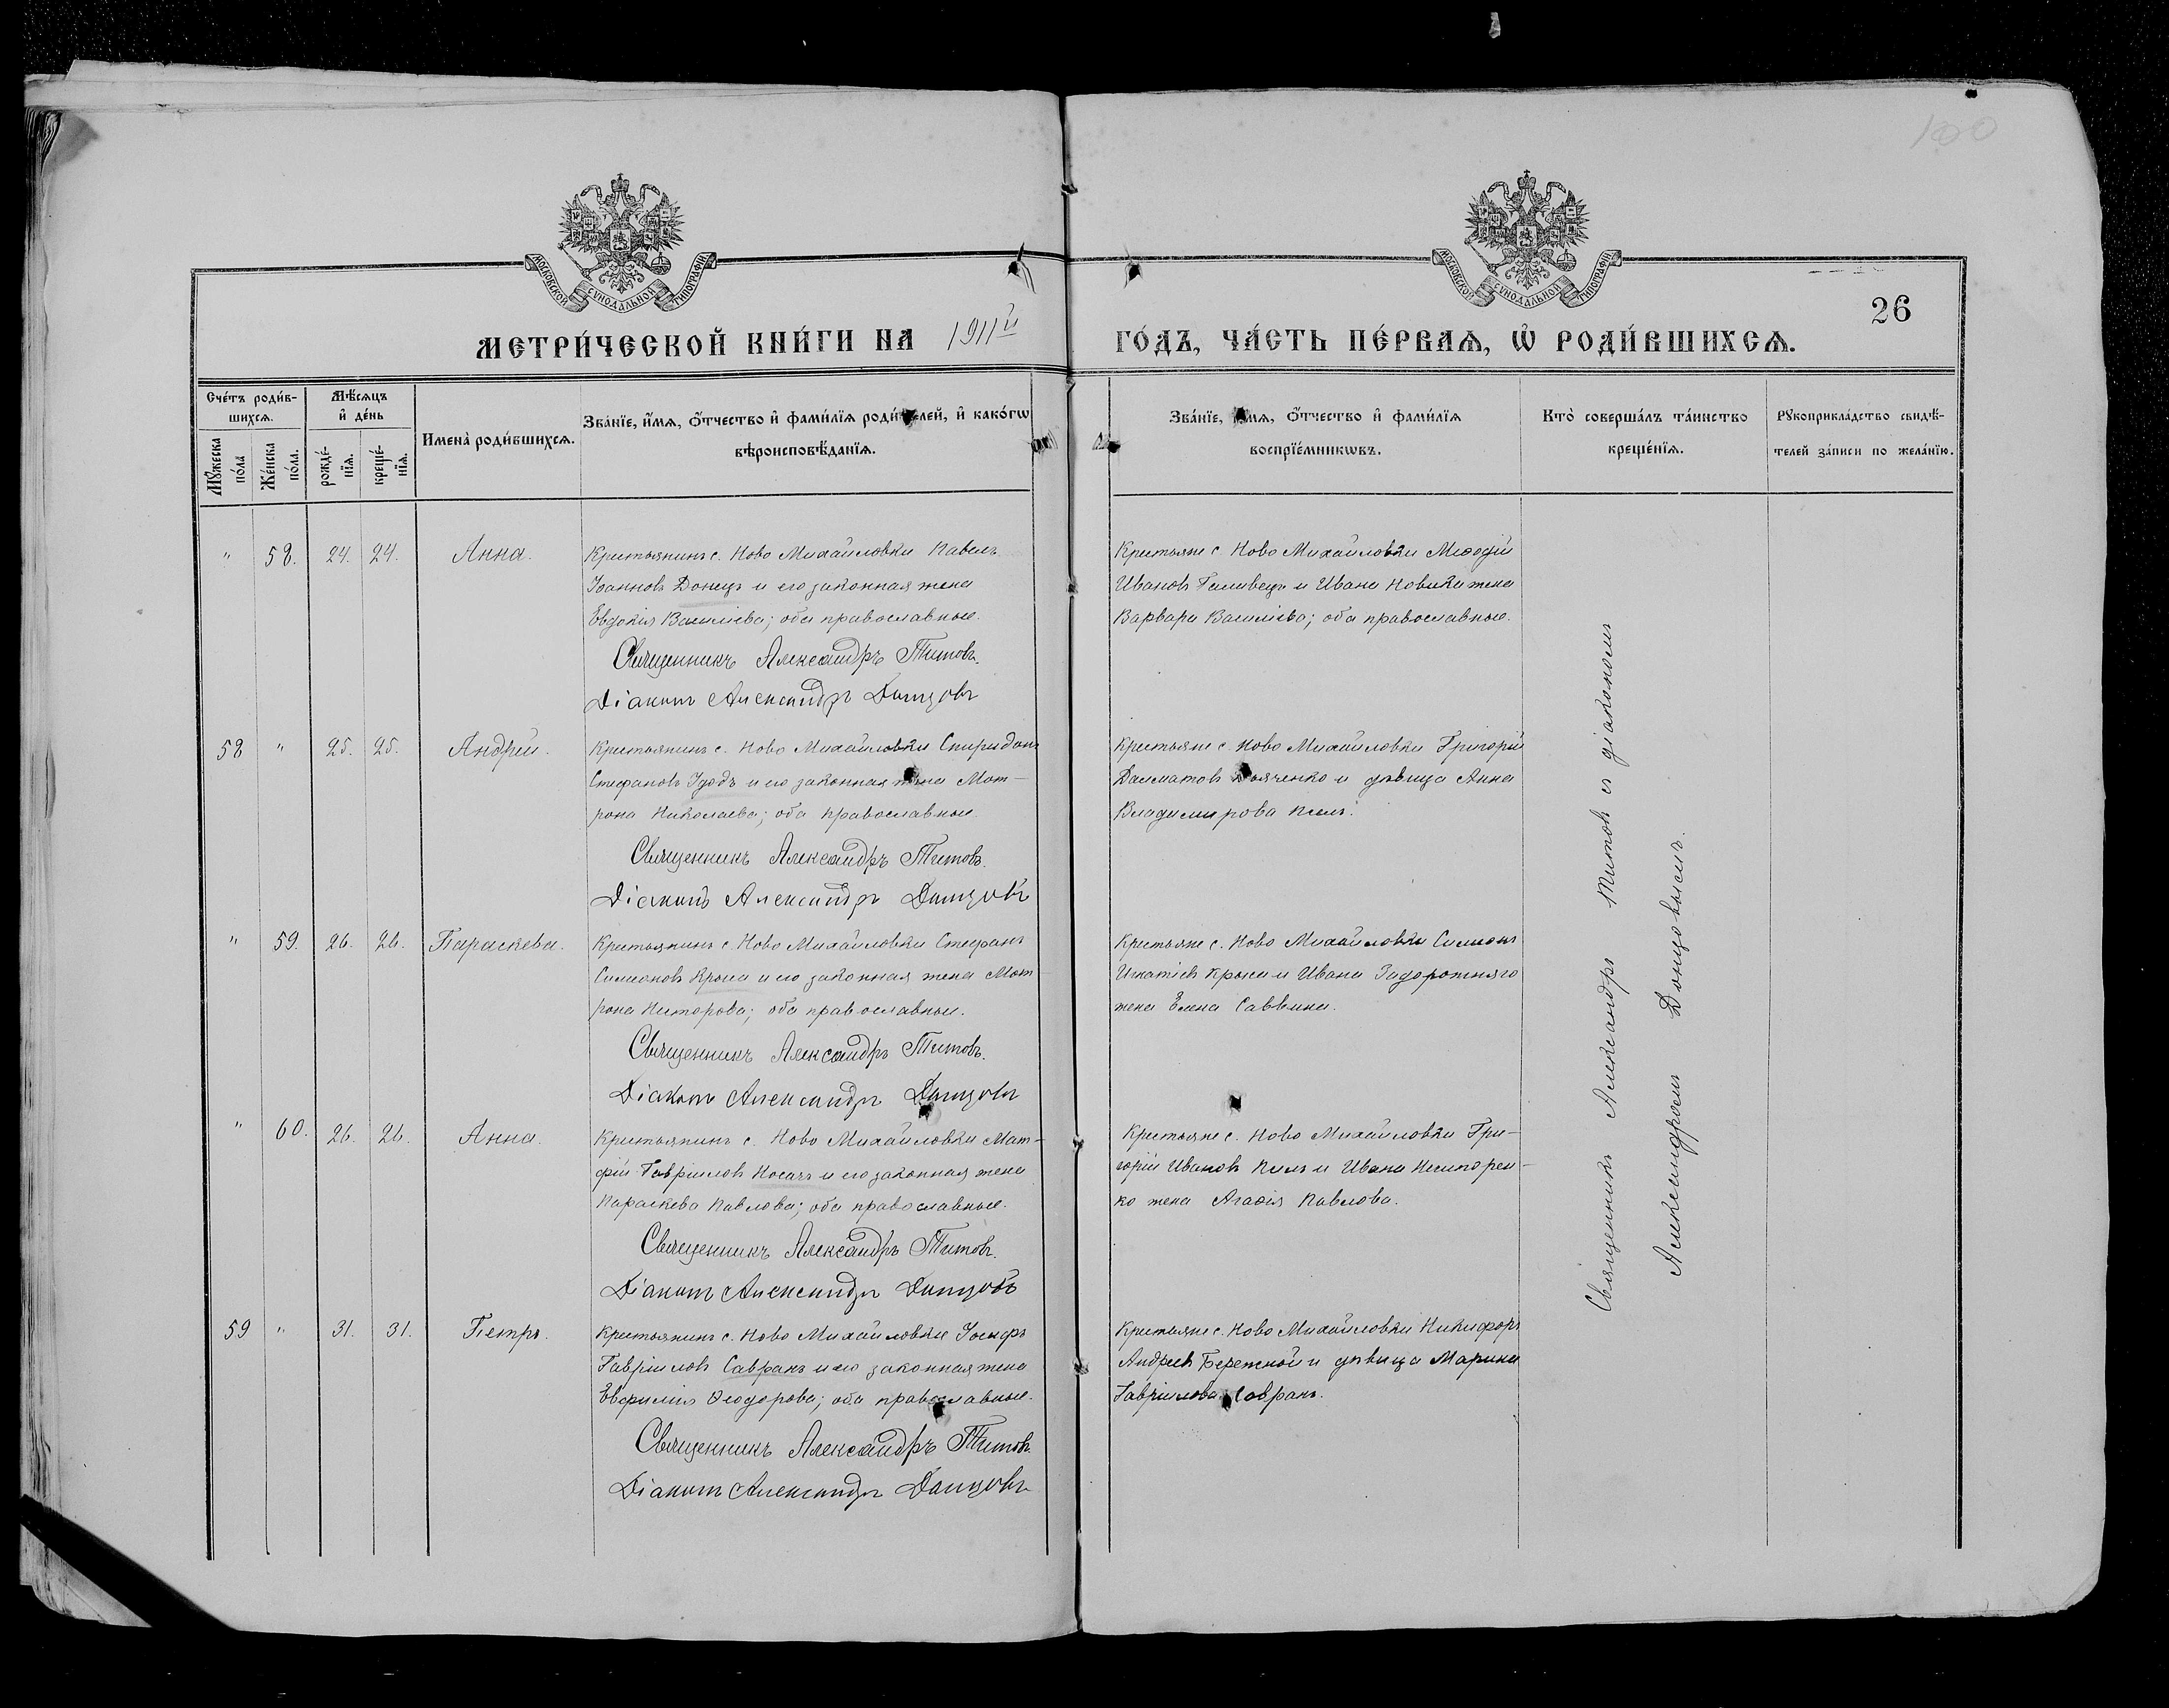 100
МОСКОВСКОЙ СѴНОДАЛЬНОЙ ТИПОГРАФІИ
МОСКОВСКОЙ СѴНОДАЛЬНОЙ ТИПОГРАФІИ
26
МЕТРИ́ЧЕСКОЙ КНИ́ГИ НА 1911й
ГО́ДЪ, ЧА́СТЬ ПЕ́РВАѦ, Ѽ РОДИ́ВШИХСѦ.
Сче́тъ роди́в-
шихсѧ.
Мꙋжеска
по́ла
Же́нска
по́ла.
Мѣ́сѧцъ
и҆ де́нь
рожде́-
нїѧ.
креще́-
нїѧ.
Имена̀ роди́вшихсѧ.
Зва́нїе, и҆́мѧ, ѻ҆́тчество и҆ фами́лїѧ роди́телей, и҆ како́гѡ
вѣроисповѣ́данїѧ.
Зва́нїе, и҆́мѧ, ѻ҆́тчество и҆ фами́лїѧ
воспрїе́мникѡвъ.
Кто̀ соверша́лъ та́инство
креще́нїѧ.
Рꙋкоприкла́дство свидѣ́-
телей за́писи по жела́нїю.
" 58. 24. 24. Анна.
Крестьянинъ с. Ново Михайловки Павелъ
Іоанновъ Донецъ и его законная жена
Евдокія Васильева; оба православные.
Священникъ Александръ Титовъ.
Діаконъ Александръ Донцовъ
Крестьяне с. Ново Михайловки Меѳодій
Ивановъ и Ивана Новика жена
Варвара Васильева; оба православные.
58 " 25. 25. Андрей.
Крестьянинъ с. Ново Михайловки Спиридонъ
Стефановъ Удодъ и его законная жена Мат-
рона Николаева; оба православные.
Священникъ Александръ Титовъ.
Діаконъ Александръ Донцовъ
Крестьяне с. Ново Михайловки Григорій
Далматовъ и дѣвица Анна
Владимирова
" 59. 26. 26. Параскева.
Крестьянинъ с. Ново Михайловки Стефанъ
Симеоновъ и его законная жена Мат
рона Несторова; оба православные.
Священникъ Александръ Титовъ.
Діаконъ Александръ Донцовъ
Крестьяне с. Ново Михайловки Симеонъ
Игнатіевъ и Ивана Задорожняго
жена Елена Саввина.
" 60. 26. 26. Анна.
Крестьянинъ с. Ново Михайловки Мат-
фій Гавріиловъ Носачъ и его законная жена
Параскева Павлова; оба православные.
Священникъ Александръ Титовъ.
Діаконъ Александръ Донцовъ
Крестьяне с. Ново Михайловки Гри-
горій Ивановъ и Ивана Нестерен-
ко жена Агаѳія Павлова.
59 " 31. 31. Петръ.
Крестьянинъ с. Ново Михайловки Іосифъ
Гавріиловъ Савранъ и его законная жена
Евфимія Ѳеодорова; оба православные.
Священникъ Александръ Титовъ.
Діаконъ Александръ Донцовъ
Крестьяне с. Ново Михайловки Никифоръ
Андреевъ Бережной и дѣвица Марина
Гавріилова Савранъ.
Священникъ Александръ Титовъ съ діакономъ
Александромъ Донцовымъ.